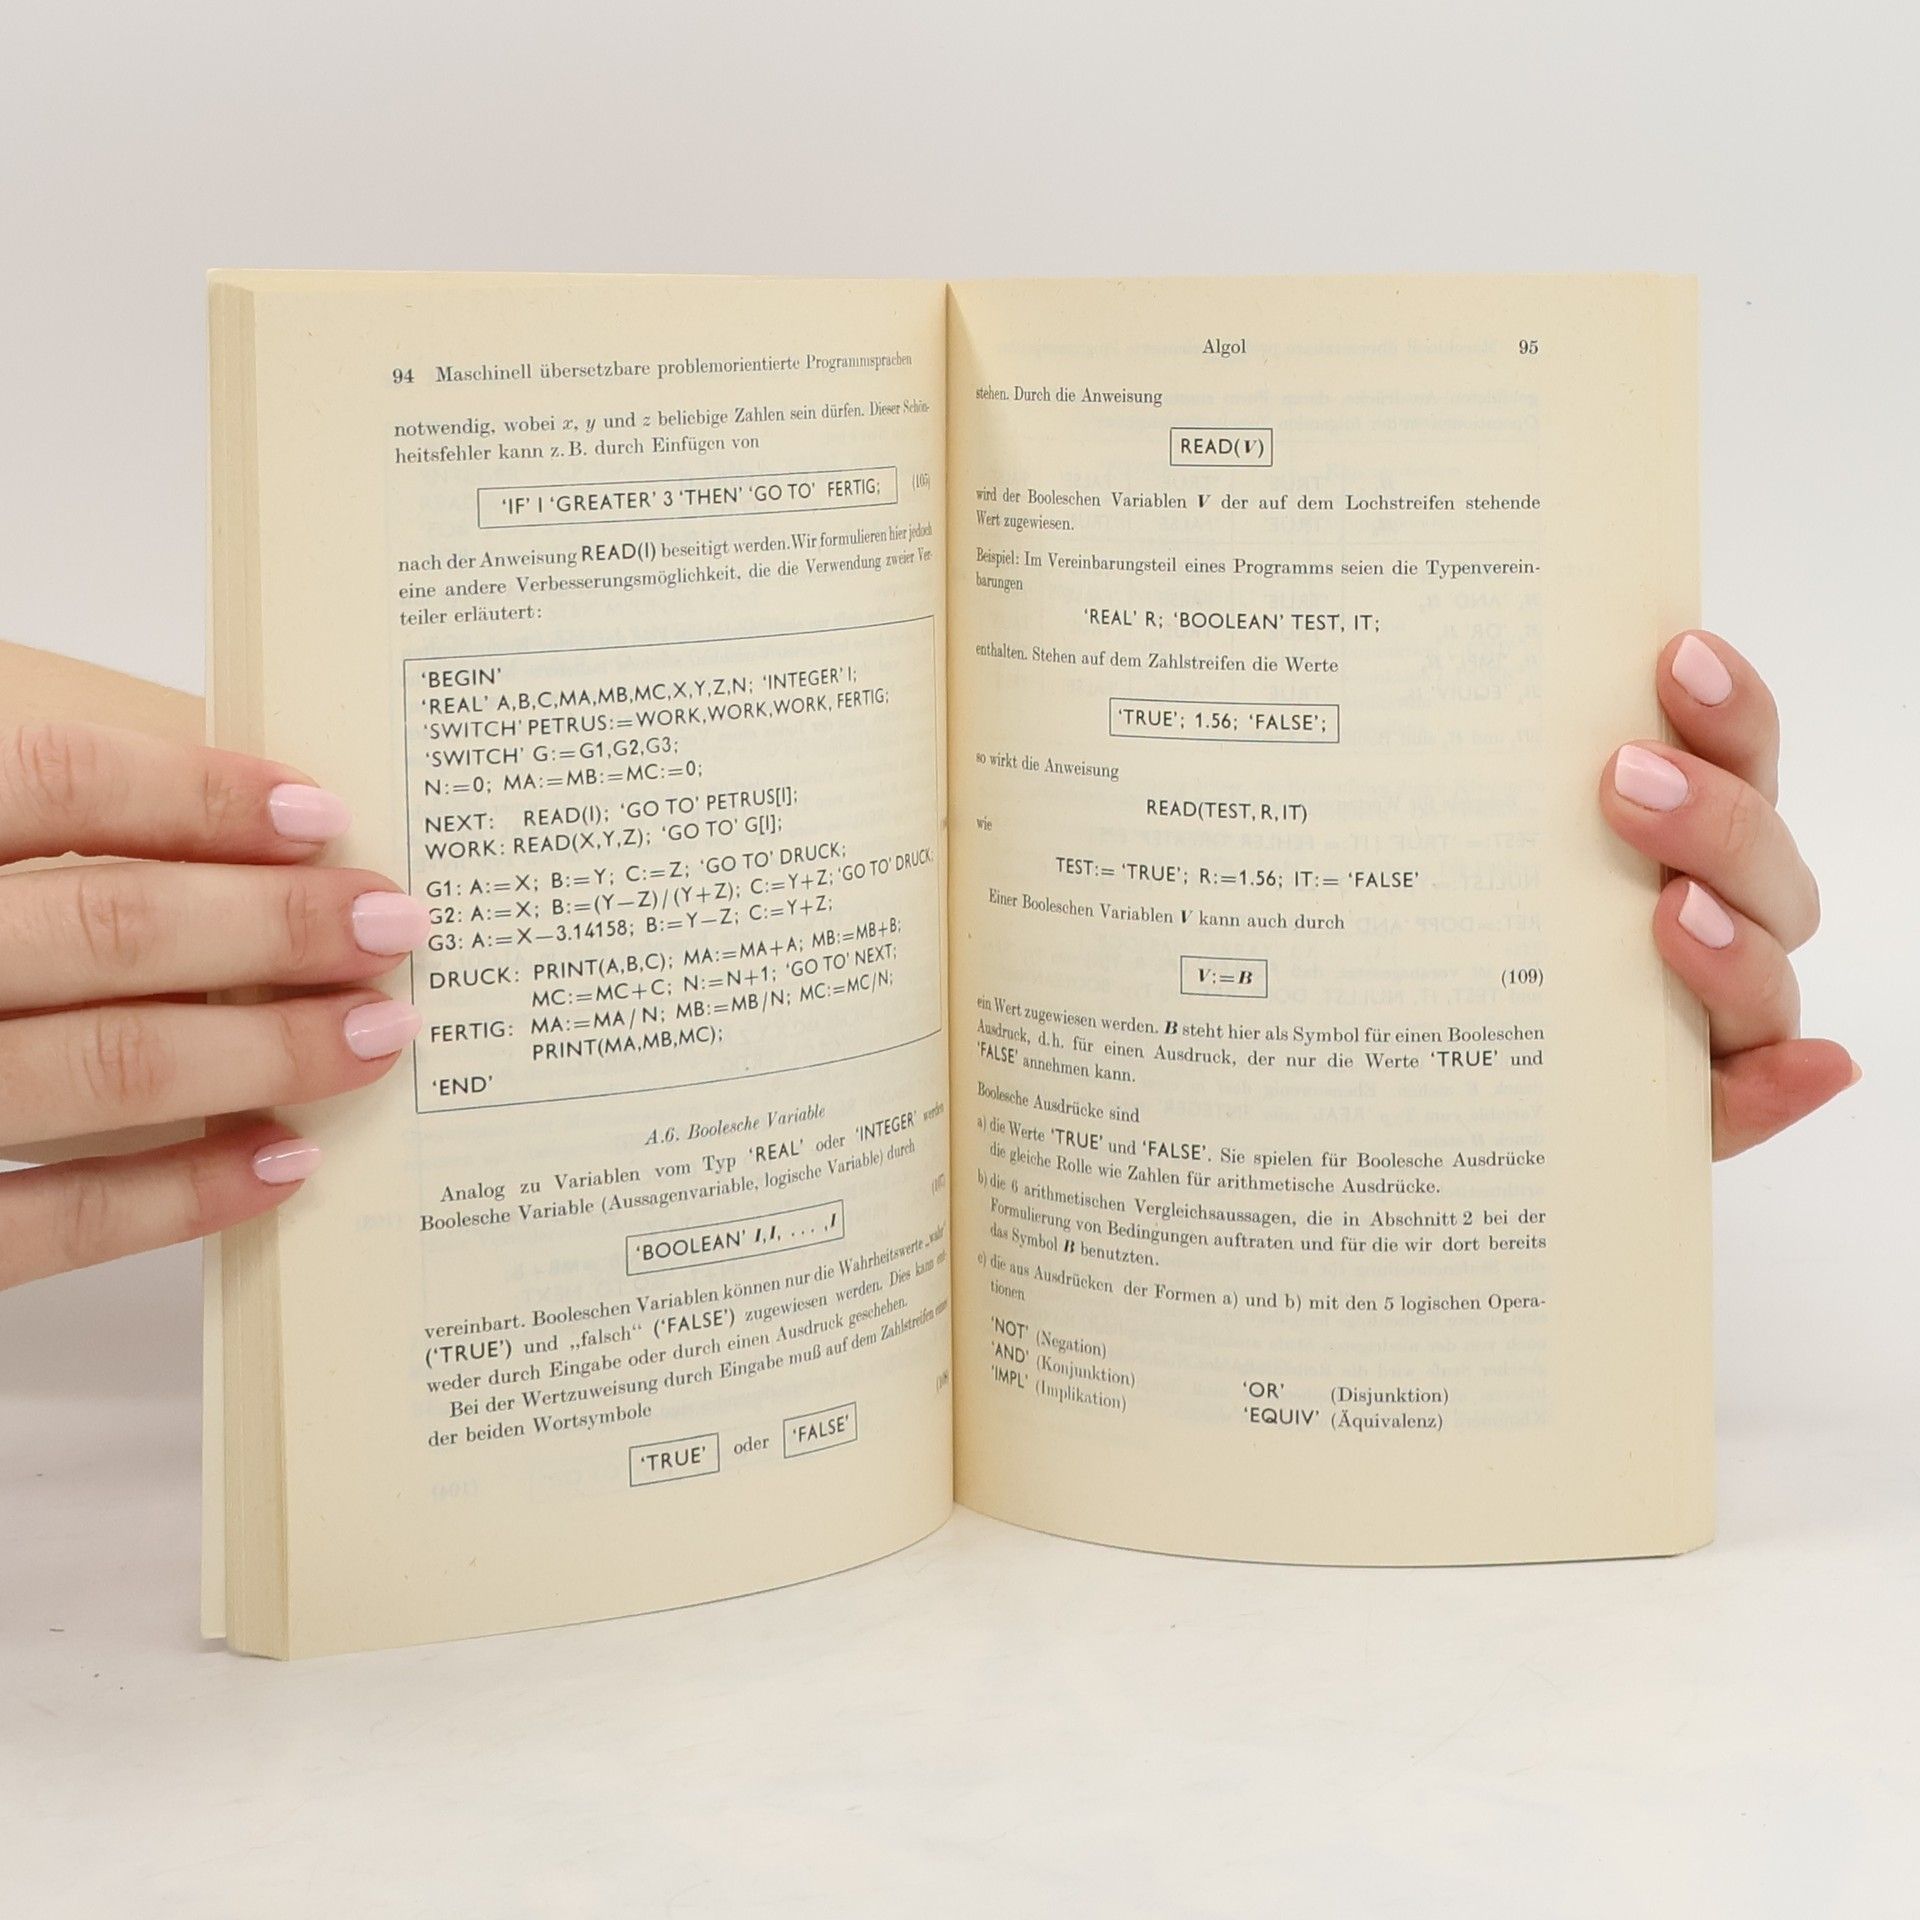 94 Maschinell übersetzbare problemorientierte Programmsprachen
notwendig, wobei x, y und z beliebige Zahlen sein dürfen. Dieser Schön-
heitsfehler kann z. B. durch Einfügen von
‘IF’ I ‘GREATER’ 3 ‘THEN’ ‘GO TO’ FERTIG; (105)
nach der Anweisung READ(I) beseitigt werden. Wir formulieren hier jedoch
eine andere Verbesserungsmöglichkeit, die die Verwendung zweier Ver-
teiler erläutert:
‘BEGIN’
‘REAL’ A,B,C,MA,MB,MC,X,Y,Z,N; ‘INTEGER’ I;
‘SWITCH’ PETRUS:=WORK,WORK,WORK, FERTIG;
‘SWITCH’ G:=G1,G2,G3;
N:=0; MA:=MB:=MC:=0;
NEXT: READ(I); ‘GO TO’ PETRUS[I];
WORK: READ(X,Y,Z); ‘GO TO’ G[I];
G1: A:=X; B:=Y; C:=Z; ‘GO TO’ DRUCK;
G2: A:=X; B:=(Y—Z)/(Y+Z); C:=Y+Z; ‘GO TO’ DRUCK;
G3: A:=X—3.14158; B:=Y—Z; C:=Y+Z;
DRUCK: PRINT(A,B,C); MA:=MA+A; MB:=MB+B;
MC:=MC+C; N:=N+1; ‘GO TO’ NEXT;
FERTIG: MA:=MA/N; MB:=MB/N; MC:=MC/N;
PRINT(MA,MB,MC);
‘END’
A.6. Boolesche Variable
Analog zu Variablen vom Typ ‘REAL’ oder ‘INTEGER’ werden
Boolesche Variable (Aussagenvariable, logische Variable) durch
‘BOOLEAN’ I,I, . . . ,I (107)
vereinbart. Booleschen Variablen können nur die Wahrheitswerte „wahr“
(‘TRUE’) und „falsch“ (‘FALSE’) zugewiesen werden. Dies kann ent-
weder durch Eingabe oder durch einen Ausdruck geschehen.
Bei der Wertzuweisung durch Eingabe muß auf dem Zahlstreifen eines
der beiden Wortsymbole
‘TRUE’ oder ‘FALSE’ (108)
Algol 95
stehen. Durch die Anweisung
READ(V)
wird der Booleschen Variablen V der auf dem Lochstreifen stehende
Wert zugewiesen.
Beispiel: Im Vereinbarungsteil eines Programms seien die Typenverein-
barungen
‘REAL’ R; ‘BOOLEAN’ TEST, IT;
enthalten. Stehen auf dem Zahlstreifen die Werte
‘TRUE’; 1.56; ‘FALSE’;
so wirkt die Anweisung
READ(TEST, R, IT)
wie
TEST:= ‘TRUE’; R:=1.56; IT:= ‘FALSE’ .
Einer Booleschen Variablen V kann auch durch
V:=B (109)
ein Wert zugewiesen werden. B steht hier als Symbol für einen Booleschen
Ausdruck, d. h. für einen Ausdruck, der nur die Werte ‘TRUE’ und
‘FALSE’ annehmen kann.
Boolesche Ausdrücke sind
a) die Werte ‘TRUE’ und ‘FALSE’. Sie spielen für Boolesche Ausdrücke
die gleiche Rolle wie Zahlen für arithmetische Ausdrücke.
b) die 6 arithmetischen Vergleichsaussagen, die in Abschnitt 2 bei der
Formulierung von Bedingungen auftraten und für die wir dort bereits
das Symbol B benutzten.
c) die aus Ausdrücken der Formen a) und b) mit den 5 logischen Opera-
tionen
‘NOT’ (Negation)
‘AND’ (Konjunktion) ‘OR’ (Disjunktion)
‘IMPL’ (Implikation) ‘EQUIV’ (Äquivalenz)